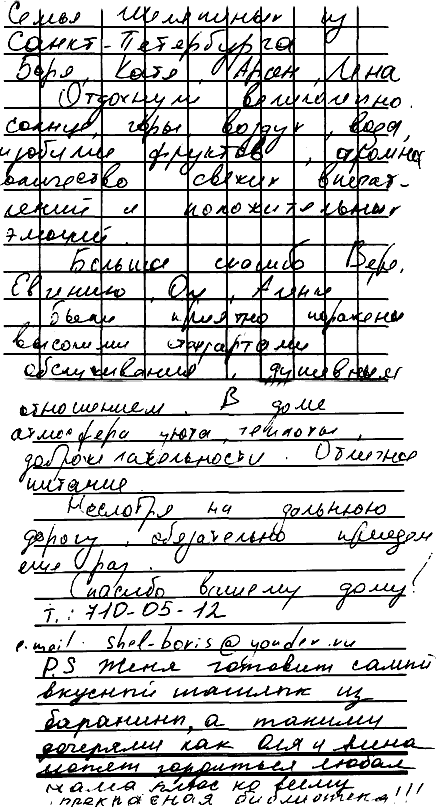 Семья Шеляпиных из
Санкт-Петербурга
Боря, Катя, Арсен, Лена
Отдохнули великолепно.
солнце, горы, воздух, вода,
изобилие фруктов, огромное
количество свежих впечат-
лений и положительных
эмоций.
Большое спасибо Вере,
Евгению, Оле,
Были приятно поражены
высокими стандартами
обслуживания, душевным
отношением. В доме
атмосфера уюта, теплоты,
доброжелательности. Отличное
питание
Несмотря на дальнюю
дорогу, обязательно приедем
еще раз.
Спасибо вашему дому!
т.: 710-05-12
e-mail: shel-boris@yandex.ru
P.S Женя готовит самый
вкусный шашлык из
баранины, а такими
дочерями как Оля и
может гордиться любая
мама плюс ко всему
прекрасная библиотека!!!